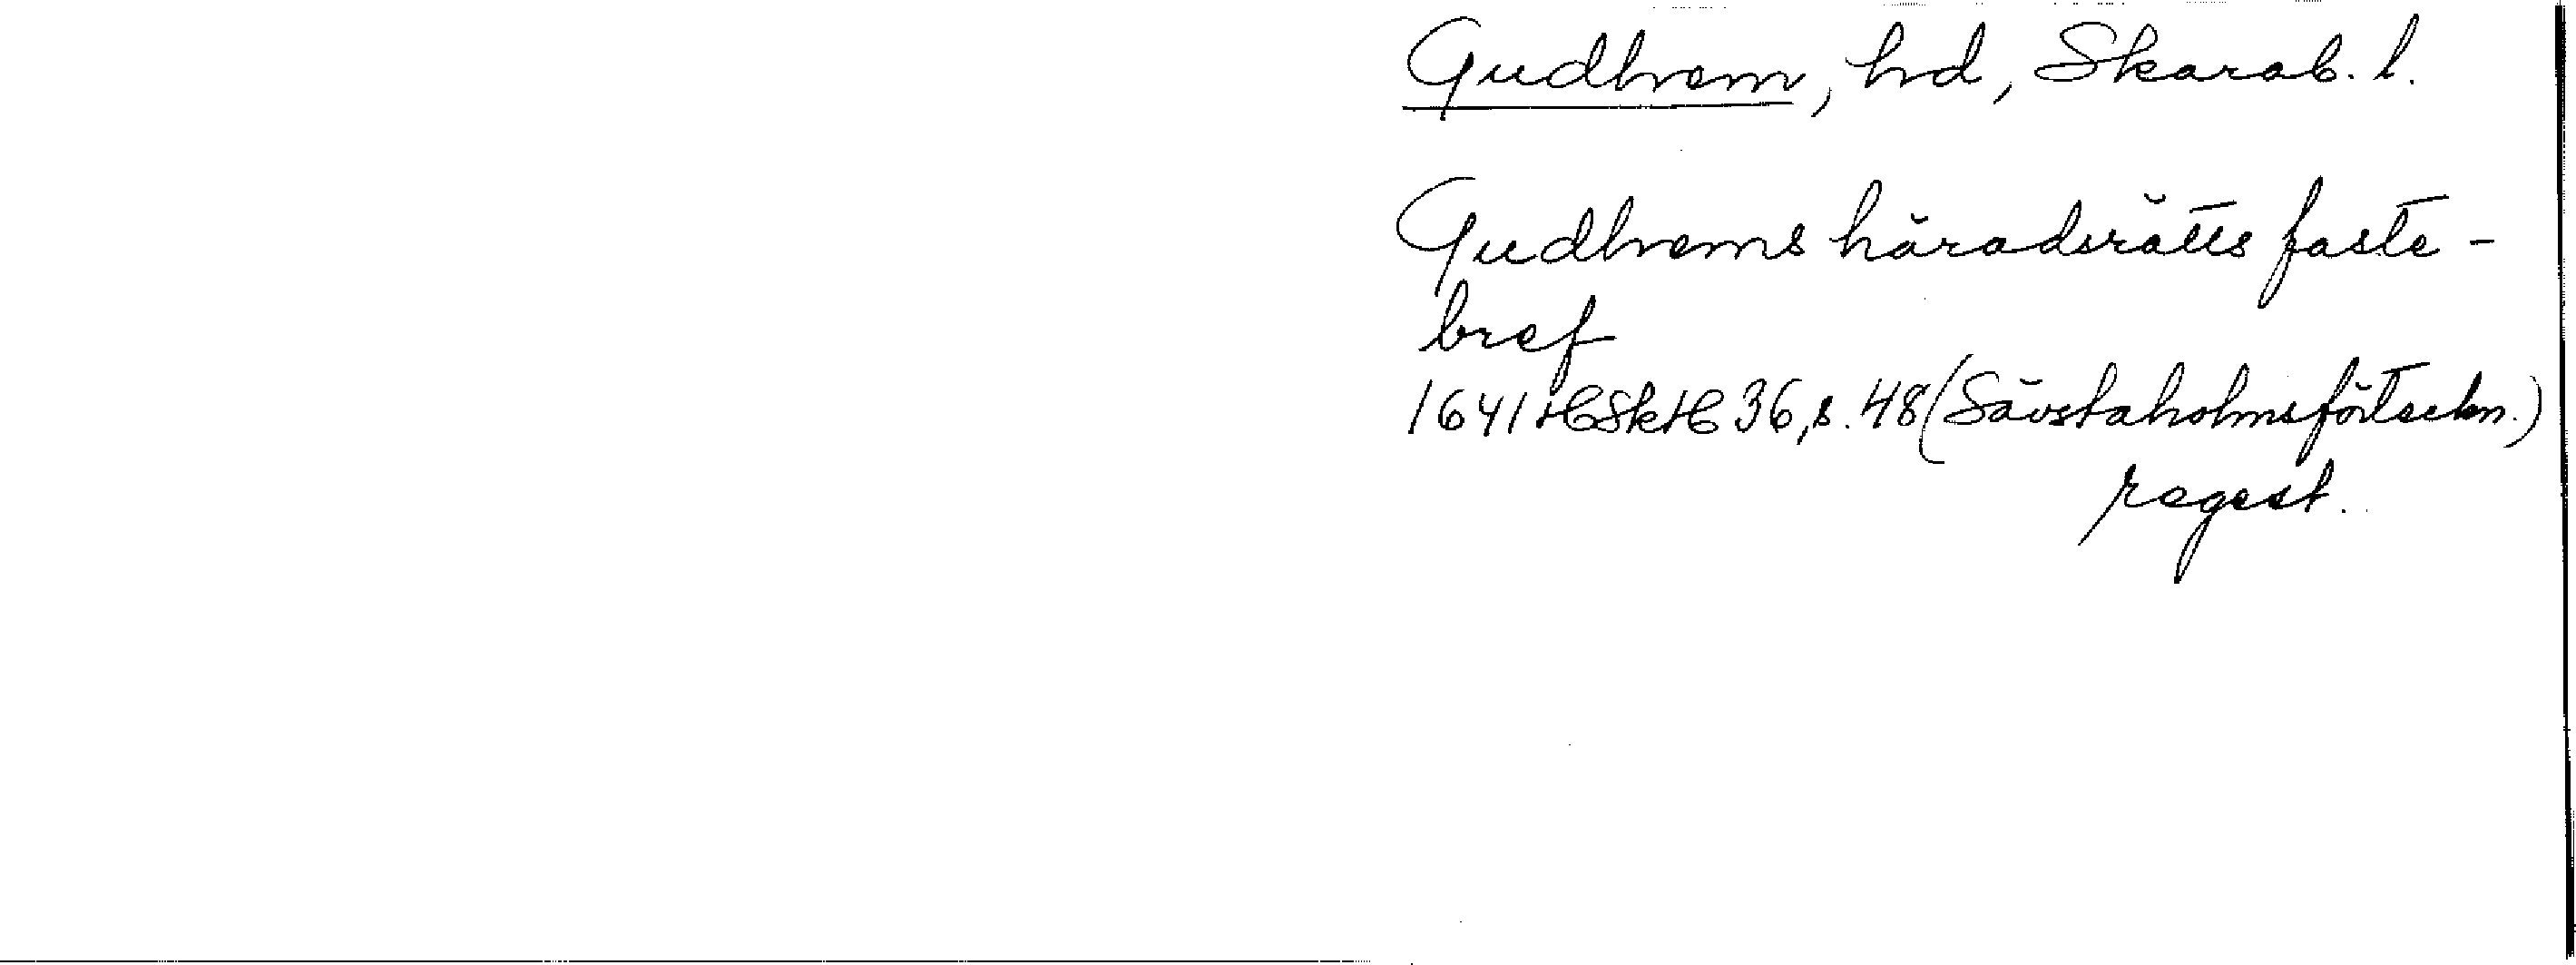 Gudhem, hd, Skarab. l.
Gudhems häradsrätts faste-
bref
1641 HSkH 36, s. 48 (Sävstaholmsförteckn.)
regest.